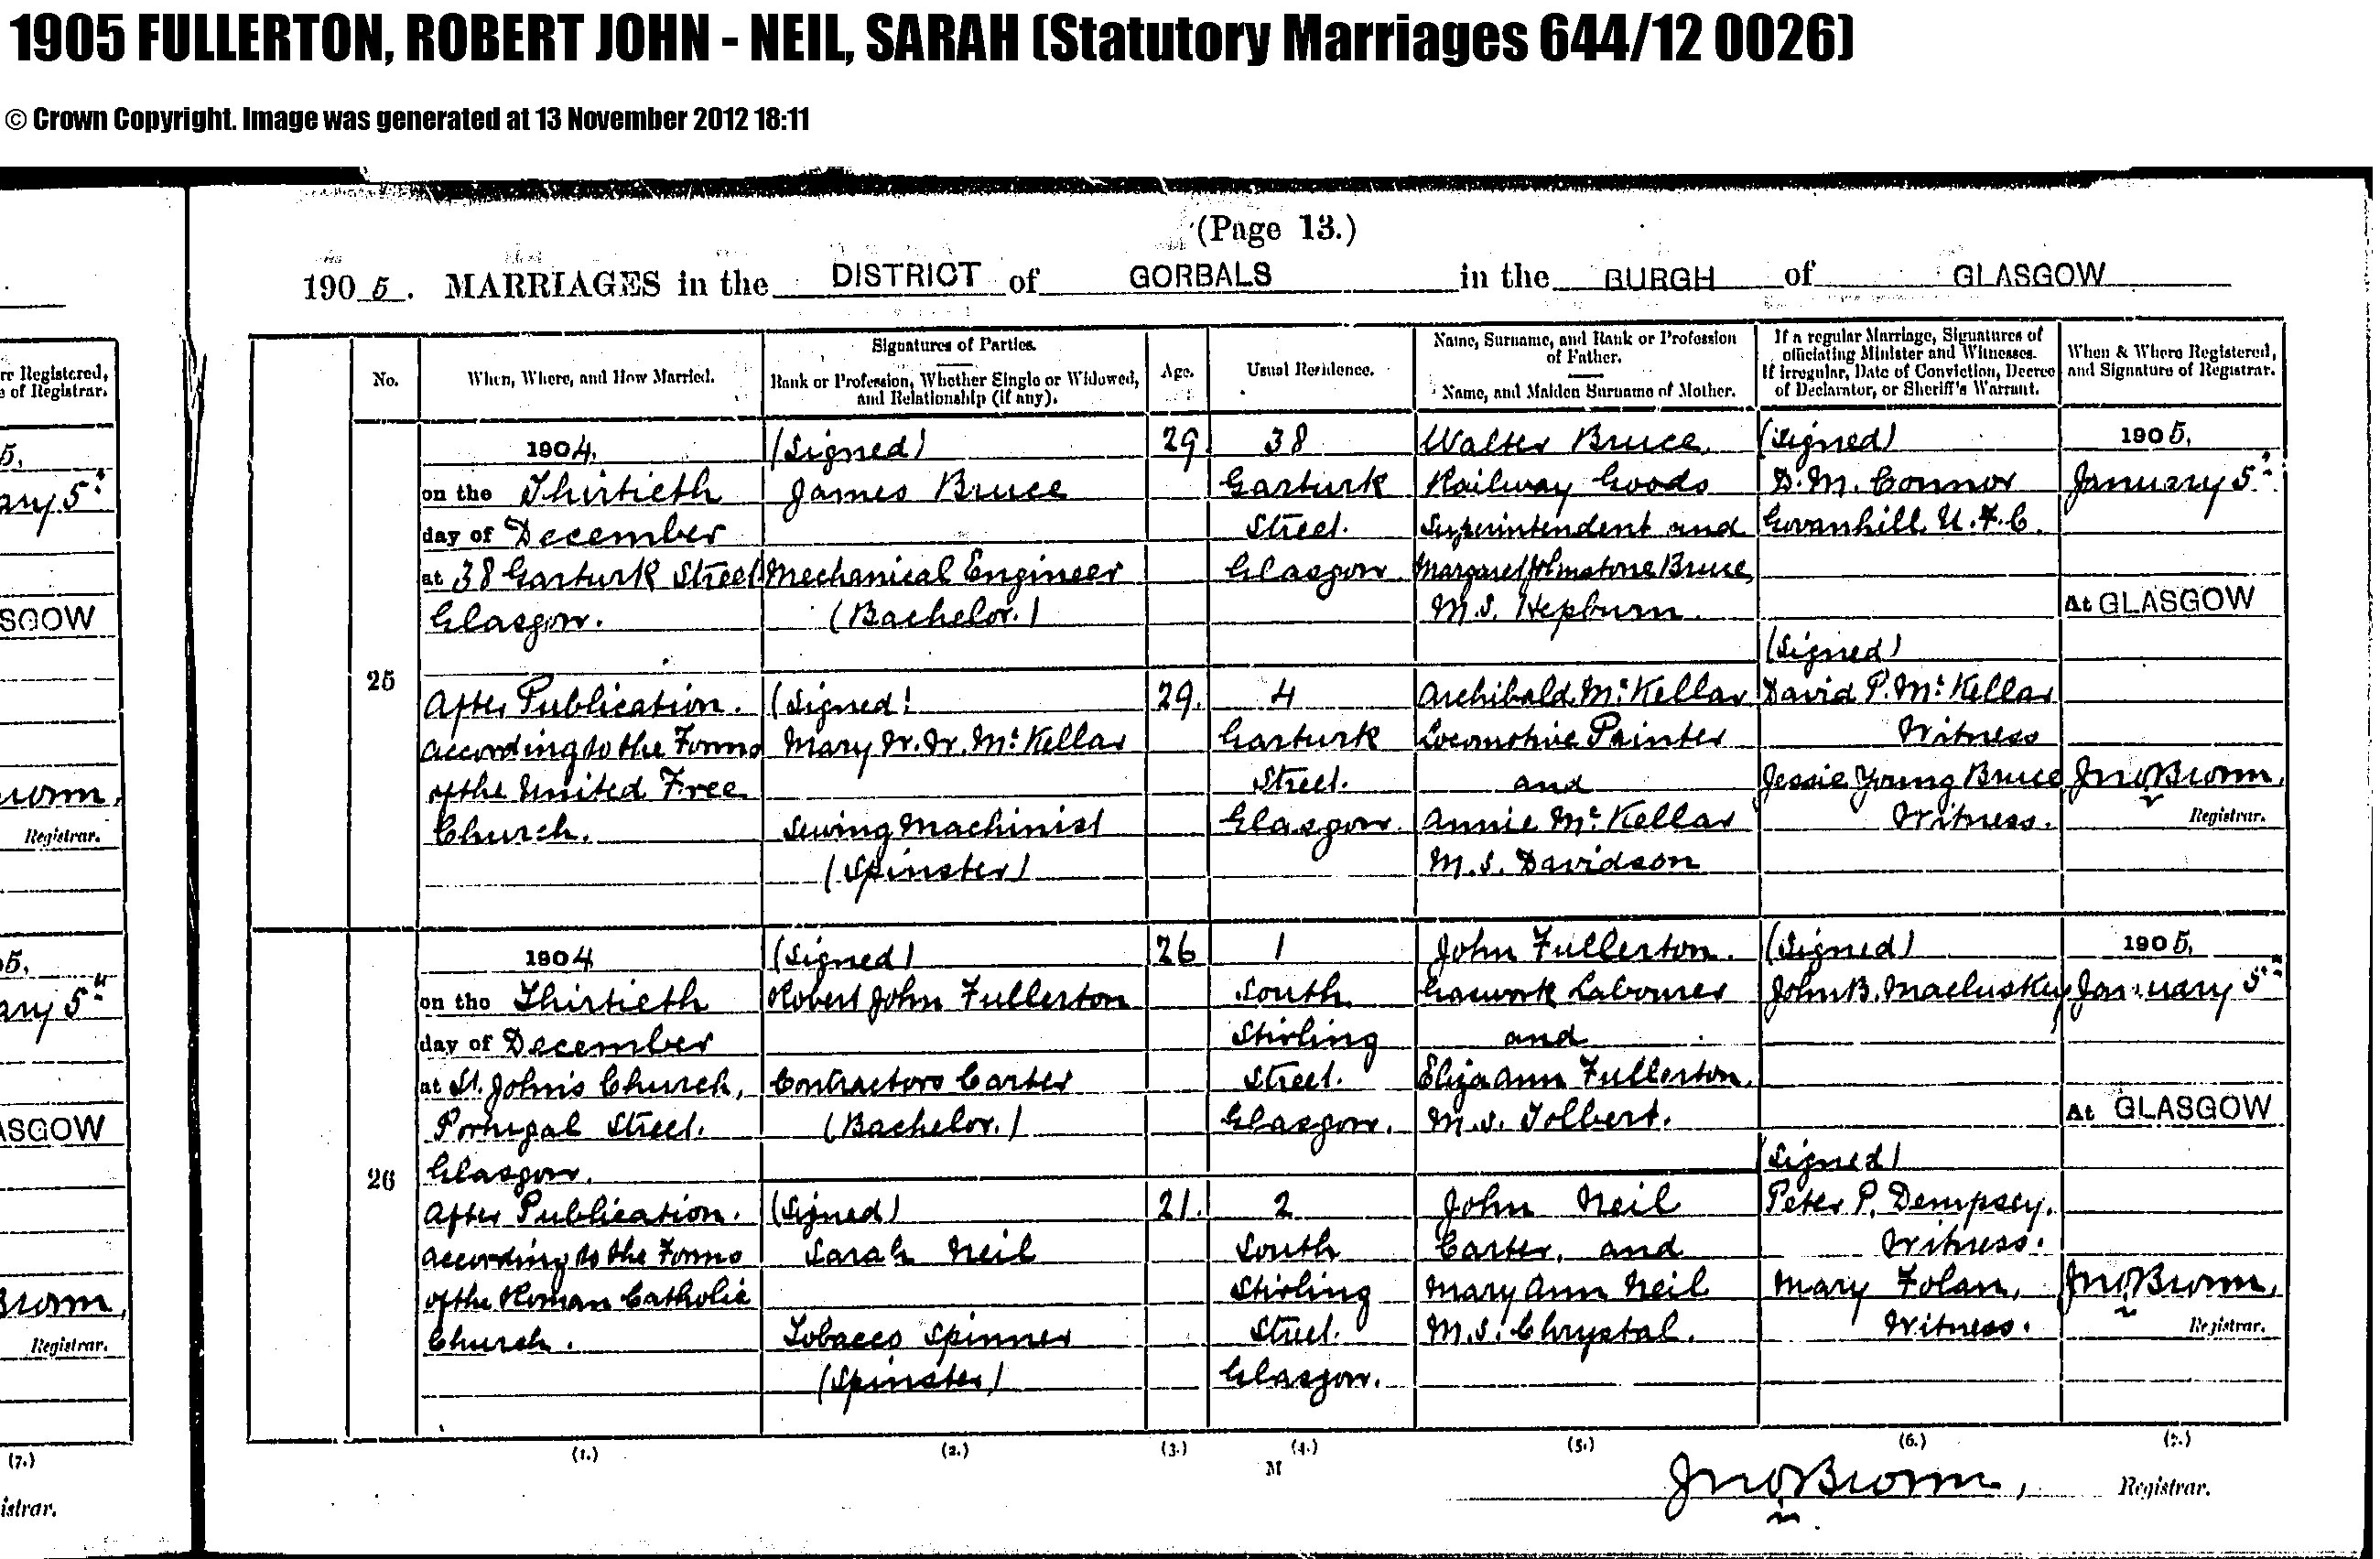 1905 FULLERTON, ROBERT JOHN - NEIL, SARAH (Statutory Marriages 644/12 0026)
© Crown Copyright. Image was generated at 13 November 2012 18:11
(Page 13.)
1905. MARRIAGES in the DISTRICT of GORBALS in the BURGH of GLASGOW
re Registered,
e of Registrar.
5.
ary 5"
SGOW
rown,
Registrar.
5.
ary 5"
ASGOW
Brown,
Registrar.
(7.)
istrar.
No.
When, Where, and How Married.
Signatures of Parties.
Rank or Profession, Whether Single or Widowed,
and Relationship (if any).
Age.
Usual Residence.
Name, Surname, and Rank or Profession
of Father.
Name, and Maiden Surname of Mother.
If a regular Marriage, Signatures of
officiating Minister and Witnesses.
If irregular, Date of Conviction, Decree
of Declarator, or Sheriff's Warrant.
When & Where Registered,
and Signature of Registrar.
25
1904.
on the Thirtieth
day of December
at 38 Garturk Street
Glasgow.
After Publication.
according to the Forms
of the United Free
Church.
(Signed)
James Bruce
Mechanical Engineer
(Bachelor.)
(Signed)
Mary W. W. McKellar
Sewing Machinist
(Spinster)
29.
29.
38
Garturk
Street.
Glasgow.
4
Garturk
Street.
Glasgow.
Walter Bruce,
Railway Goods
Superintendent and
Margaret Johnstone Bruce
M.S. Hepburn.
Archibald McKellar
Locomotive Painter
and
Annie McKellar
M.S. Davidson
(Signed)
D. M. Connor
Govanhill U.F.C.
(Signed)
David P. McKellar
Witness
Jessie Young Bruce
Witness.
1905,
January 5"
At GLASGOW
Jno Brown,
Registrar.
26
1904
on the Thirtieth
day of December
at St. John's Church,
Portugal Street.
Glasgow.
After Publication.
according to the Forms
of the Roman Catholic
Church.
(Signed)
Robert John Fullerton
Contractors Carter
(Bachelor.)
(Signed)
Sarah Neil
Tobacco Spinner
(Spinster)
26
21.
1
South
Stirling
Street.
Glasgow.
2
South
Stirling
Street.
Glasgow.
John Fullerton.
Gaswork Labourer
and
Eliza Ann Fullerton.
M.S. Tolbert.
John Neil
Carter, and
Mary Ann Neil
M.S. Chrystal.
(Signed)
John B. Macluskey
(Signed)
Peter P. Dempsey.
Witness.
Mary Folan,
Witness.
1905.
January 5"
At GLASGOW
Jno Brown,
Registrar.
(1.) (2.) (3.) (4.) (5.) (6.) (7.)
M
Jno Brown, Registrar.